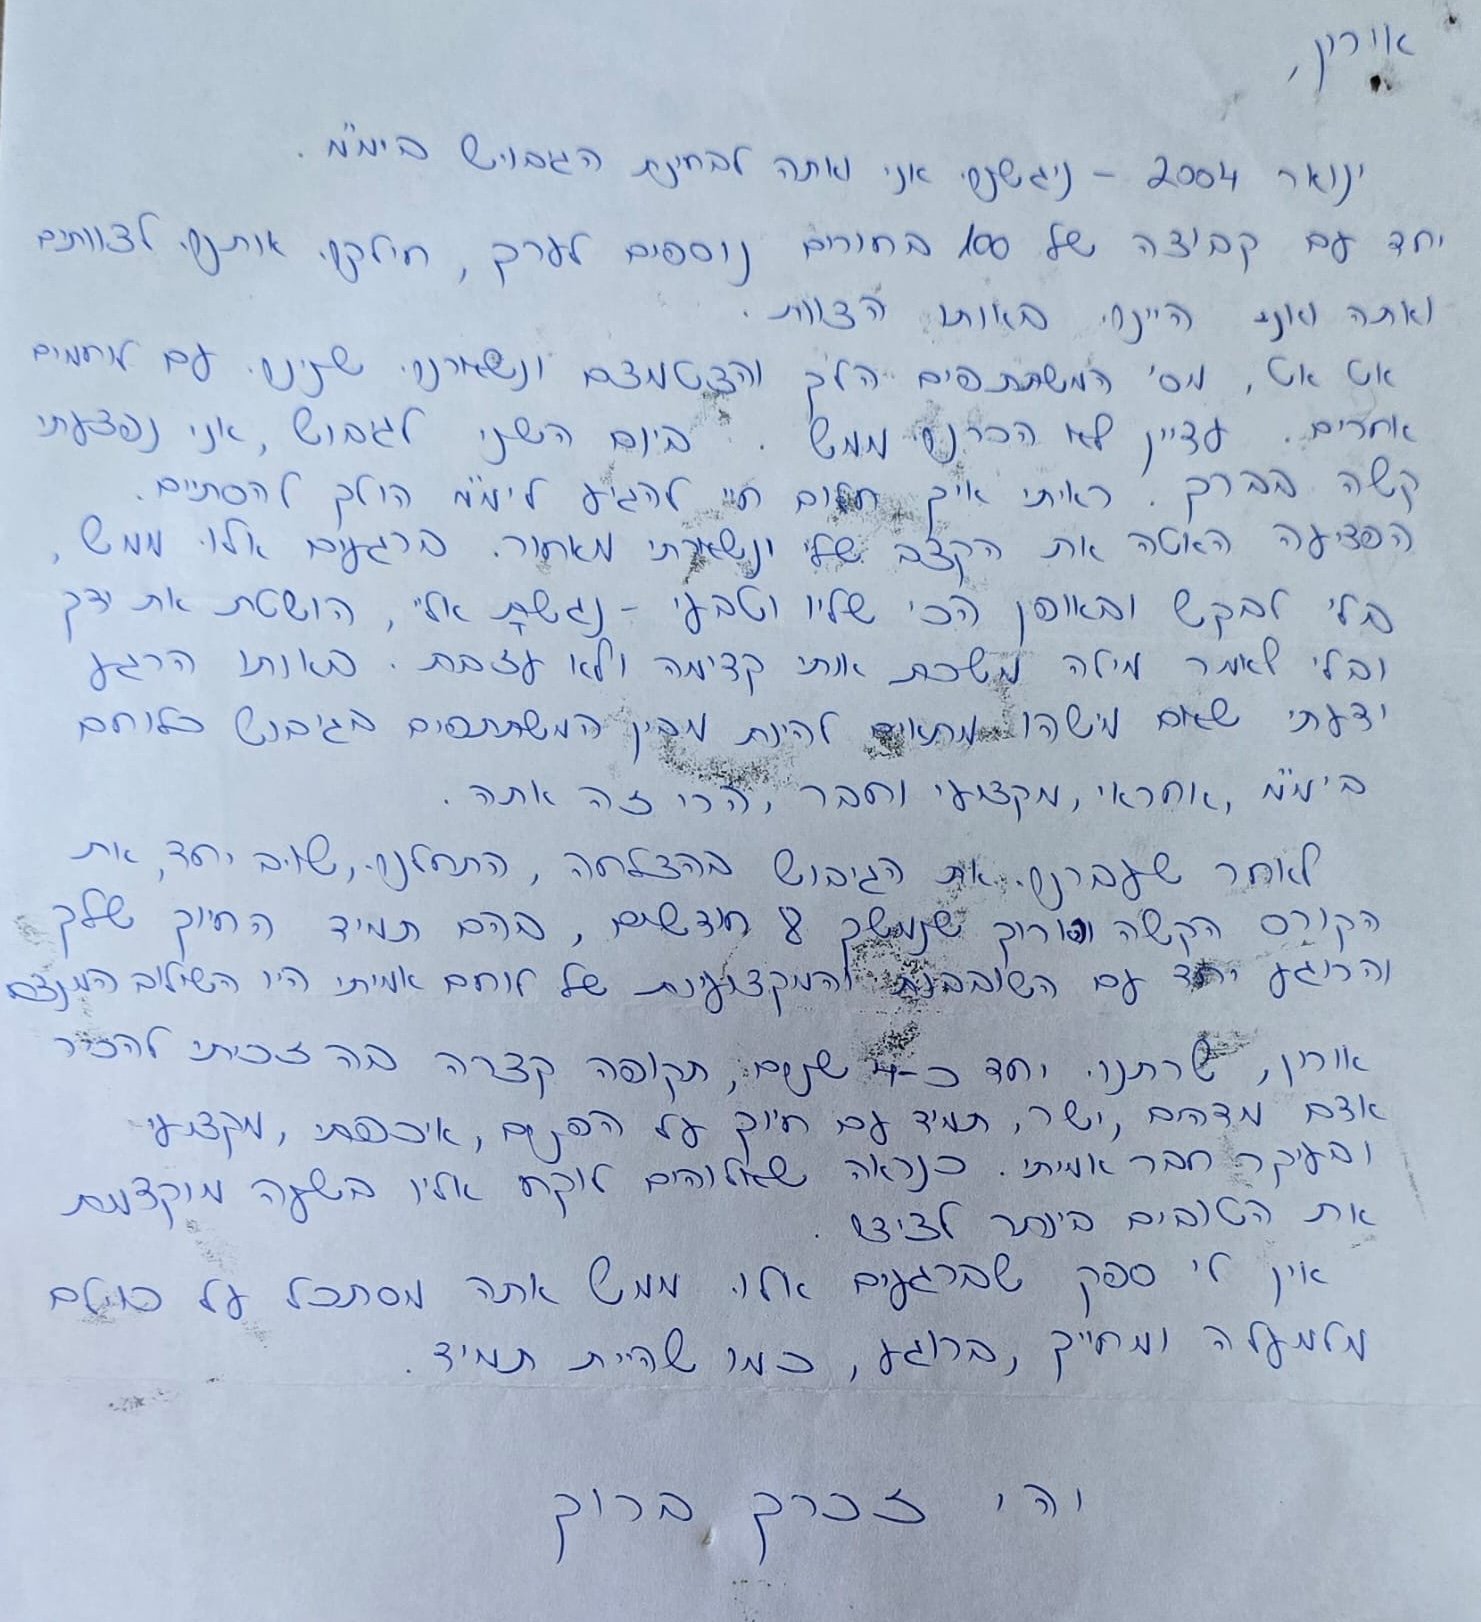 אורון,
ינואר 2004 - ניגשנו אני ואתה לבחינת הגבוש בימ"מ.
יחד עם קבוצה של 100 בחורים נוספים לערך, חילקו אותנו לצוותים
ואתה ואני היינו באותו הצוות.
אט אט, מס' המשתתפים הלך והצטמצם ונשארנו שנינו עם לוחמים
אחרים. עדיין לא הכרנו ממש. ביום השני לגבוש, אני נפצעתי
קשה בברך. ראיתי איך חלום חיי להגיע לימ"מ הולך להסתיים.
הפציעה האטה את הקצב שלי ונשארתי מאחור. ברגעים אלו ממש,
בלי לבקש ובאופן הכי שליו וטבעי - נגשתָ אליי, הושטת את ידך
ובלי לאמר מילה משכת אותי קדימה ולא עזבת. באותו הרגע
ידעתי שאם מישהו מתאים להיות מבין המשתתפים בגיבוש כלוחם
בימ"מ, אחראי, מקצועי וחבר, הרי זה אתה.
לאחר שעברנו את הגיבוש בהצלחה, התחלנו, שוב יחד, את
הקורס הקשה וארוך שנמשך 8 חודשים, בהם תמיד החיוך שלך
והרוגע יחד עם השובבות והמקצועיות של לוחם אמיתי היו השילוב המנצח
אורון, שרתנו יחד כ-4 שנים, תקופה קצרה בה זכיתי להכיר
אדם מדהים, ישר, תמיד עם חיוך על הפנים, איכפתי, מקצועי
ובעיקר חבר אמיתי. כנראה שאלוהים לוקח אליו בשעה מוקדמת
את הטובים ביותר לצידו.
אין לי ספק שברגעים אלו ממש אתה מסתכל על כולם
מלמעלה ומחייך, ברוגע, כמו שהיית תמיד.
יהי זכרך ברוך